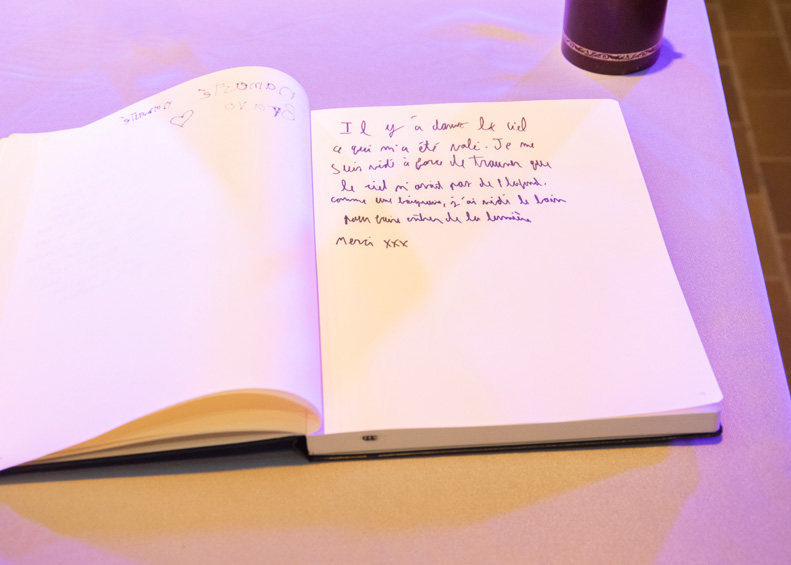 Il y a dans le ciel
ce qui m'a été volé. Je me
suis vidé à force de trouver que
le ciel n'avait pas de plafond.
comme une baignoire, j'ai vidé le bain
pour faire entrer de la lumière
Merci xxx
Namasté
Bravo